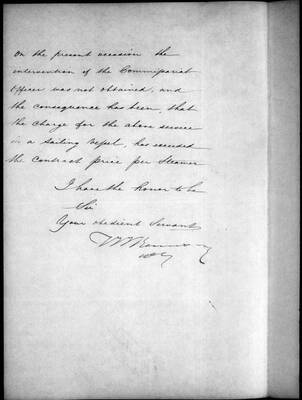 On the present occasion the
intervention of the Commissariat
Officer was not obtained, and
the consequence has been, that
the charge for the above service
in a sailing vessel, has exceeded
the contract price per Steamer
I have the honor to be
Sir
Your obedient Servant